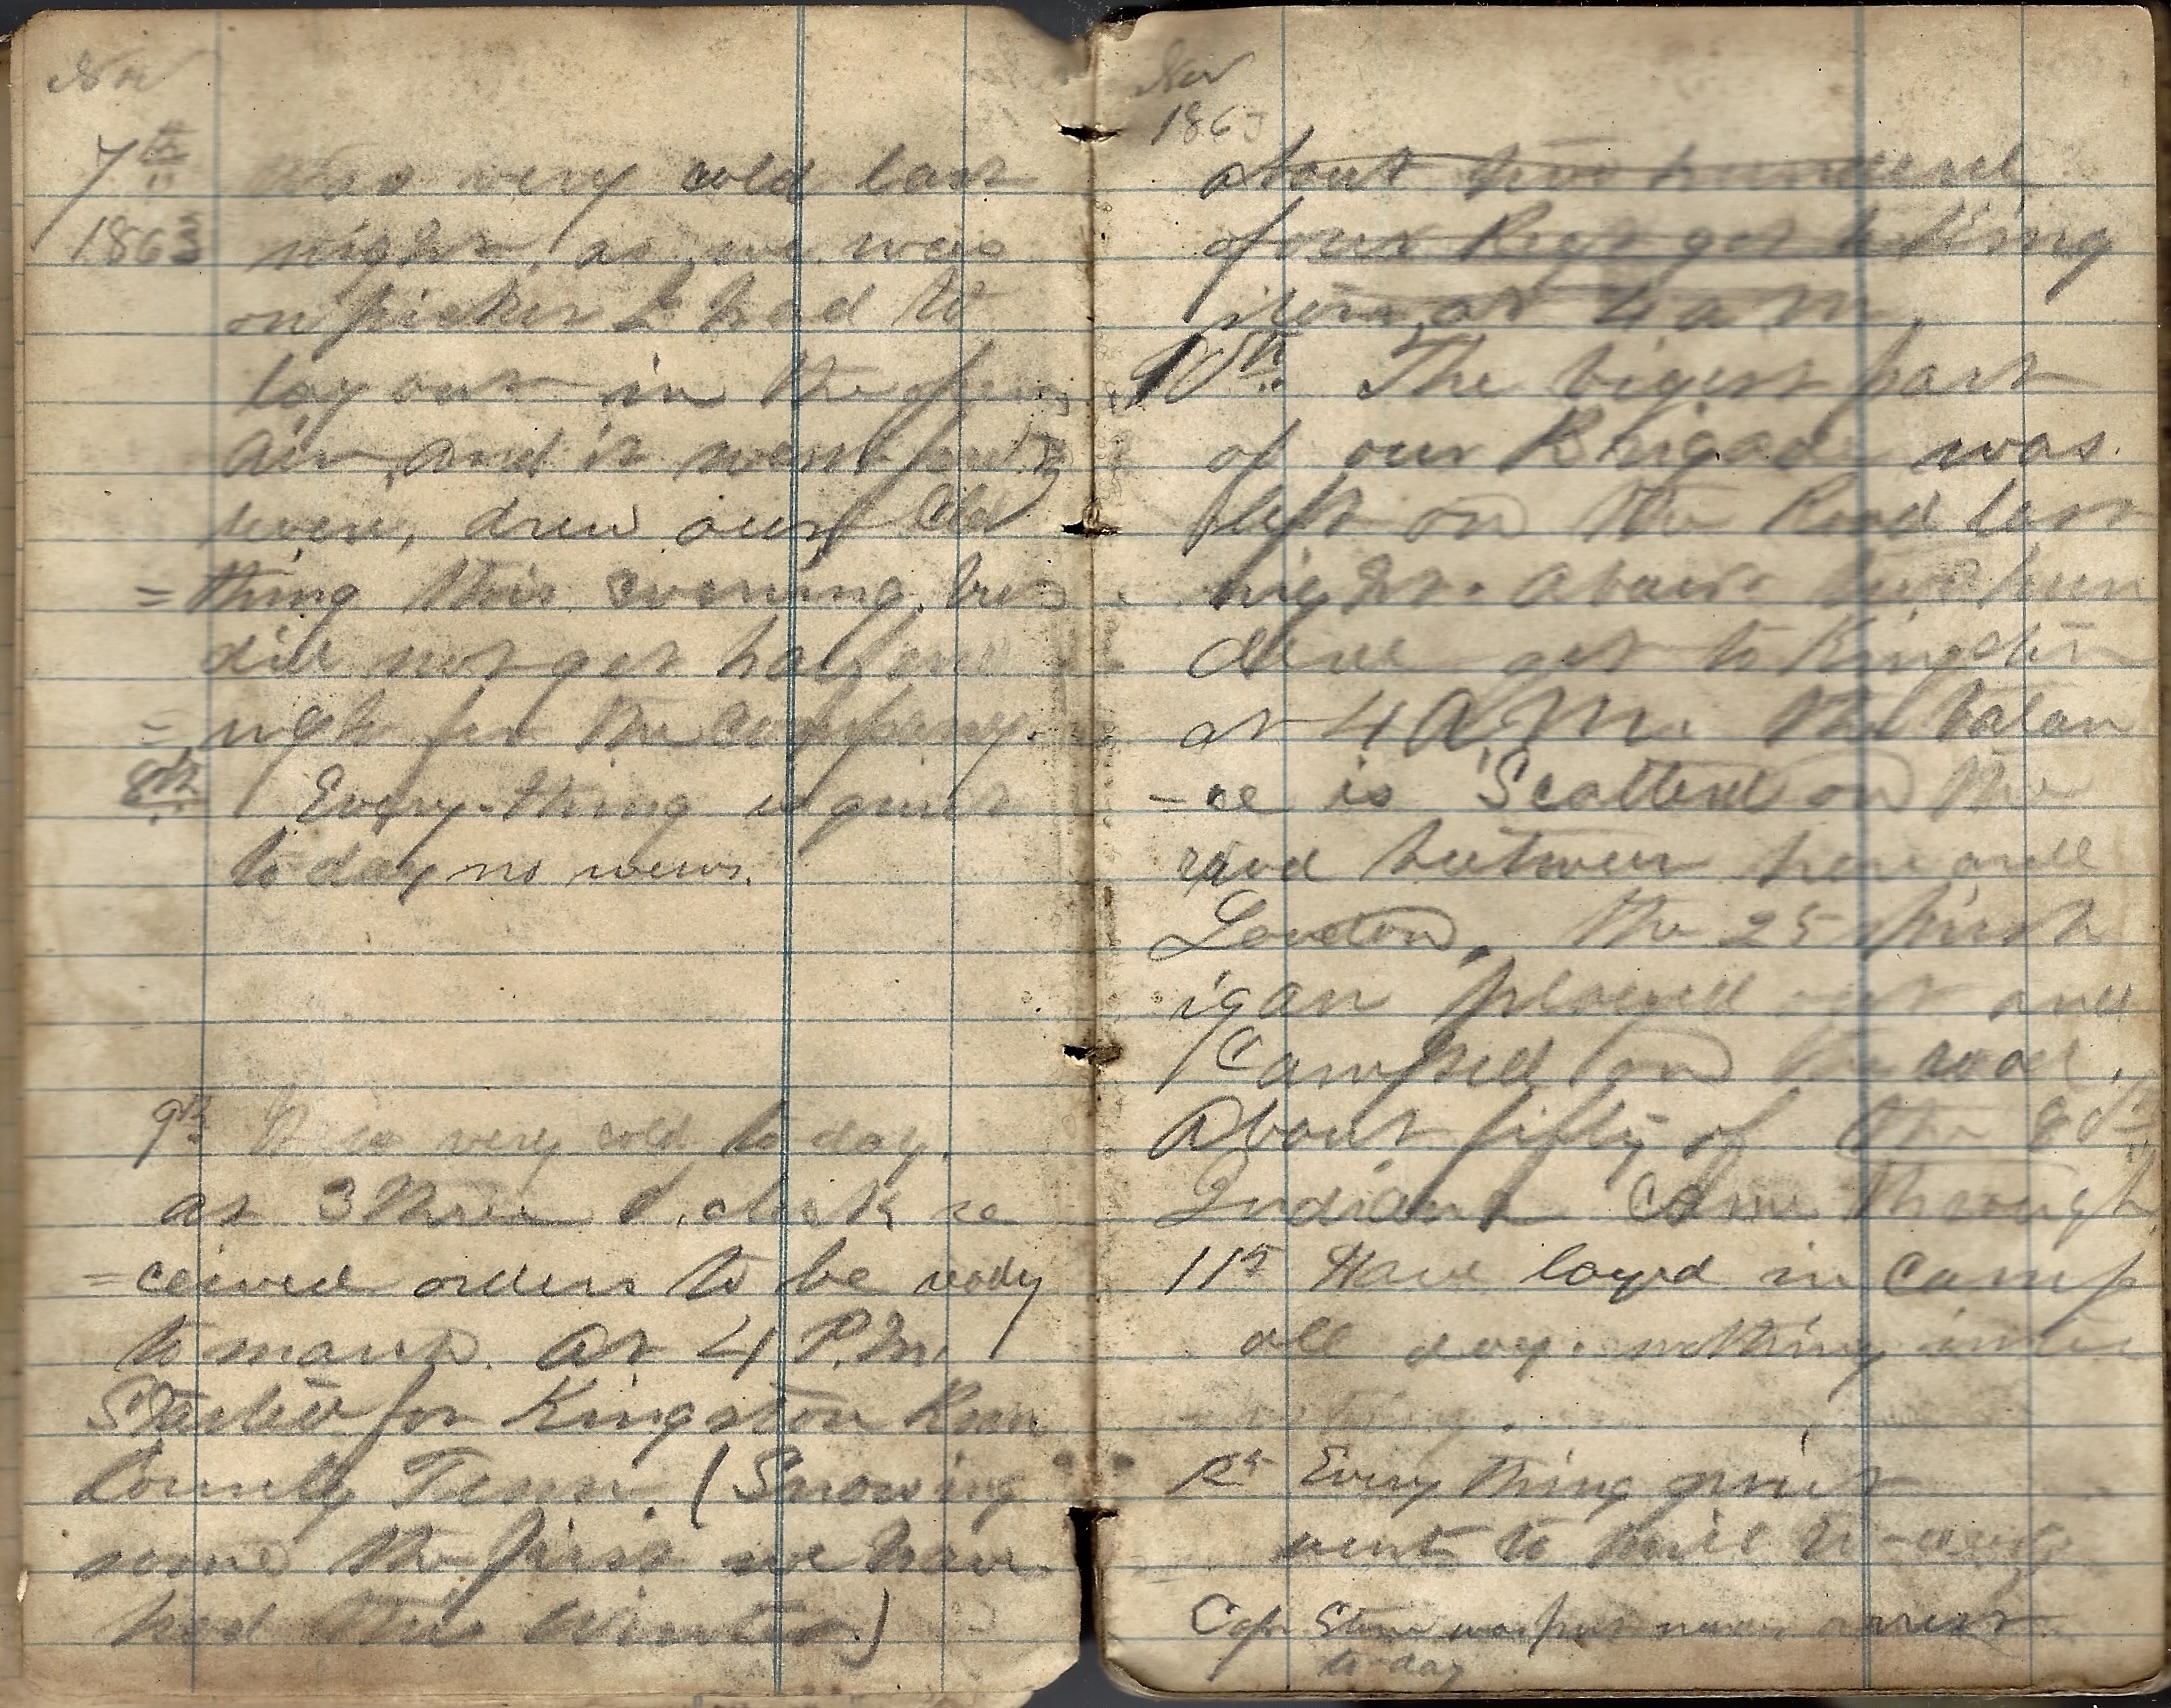 Nov
7th Was very cold last
1863 night, as we was
on picket & had to
lay out in the open
air, and it went pretty
severe, drew our Clo
=thing this evening, but
did not get half eno
=ugh for the company.
8th Every-thing is quiet
to day, no news.
9th It is very cold to day.
at 3 three O,clock re
=ceived orders to be ready
to march. At 4 P.M.
Started for Kingston Roan
County Tenn. (Snowing
some the first we have
had this Winter)
Nov
1863
about two hundred
of our Regt got to
at 4 a m,
10th The bigest part
of our Brigade was
left on the Road last
night. about two hun
dred got to Kingston
at 4 A.M. the balan
-ce is Scatterd on the
road between here and
Loudon. the 25 Mich
igan played out and
Camped on the road.
About fifty of the 80th
Indiana Came through
11th Have layed in Camp
all day. nothing inter
12th Every thing quiet
went to mill to-day
Capt Stone was put under arrest
to-day